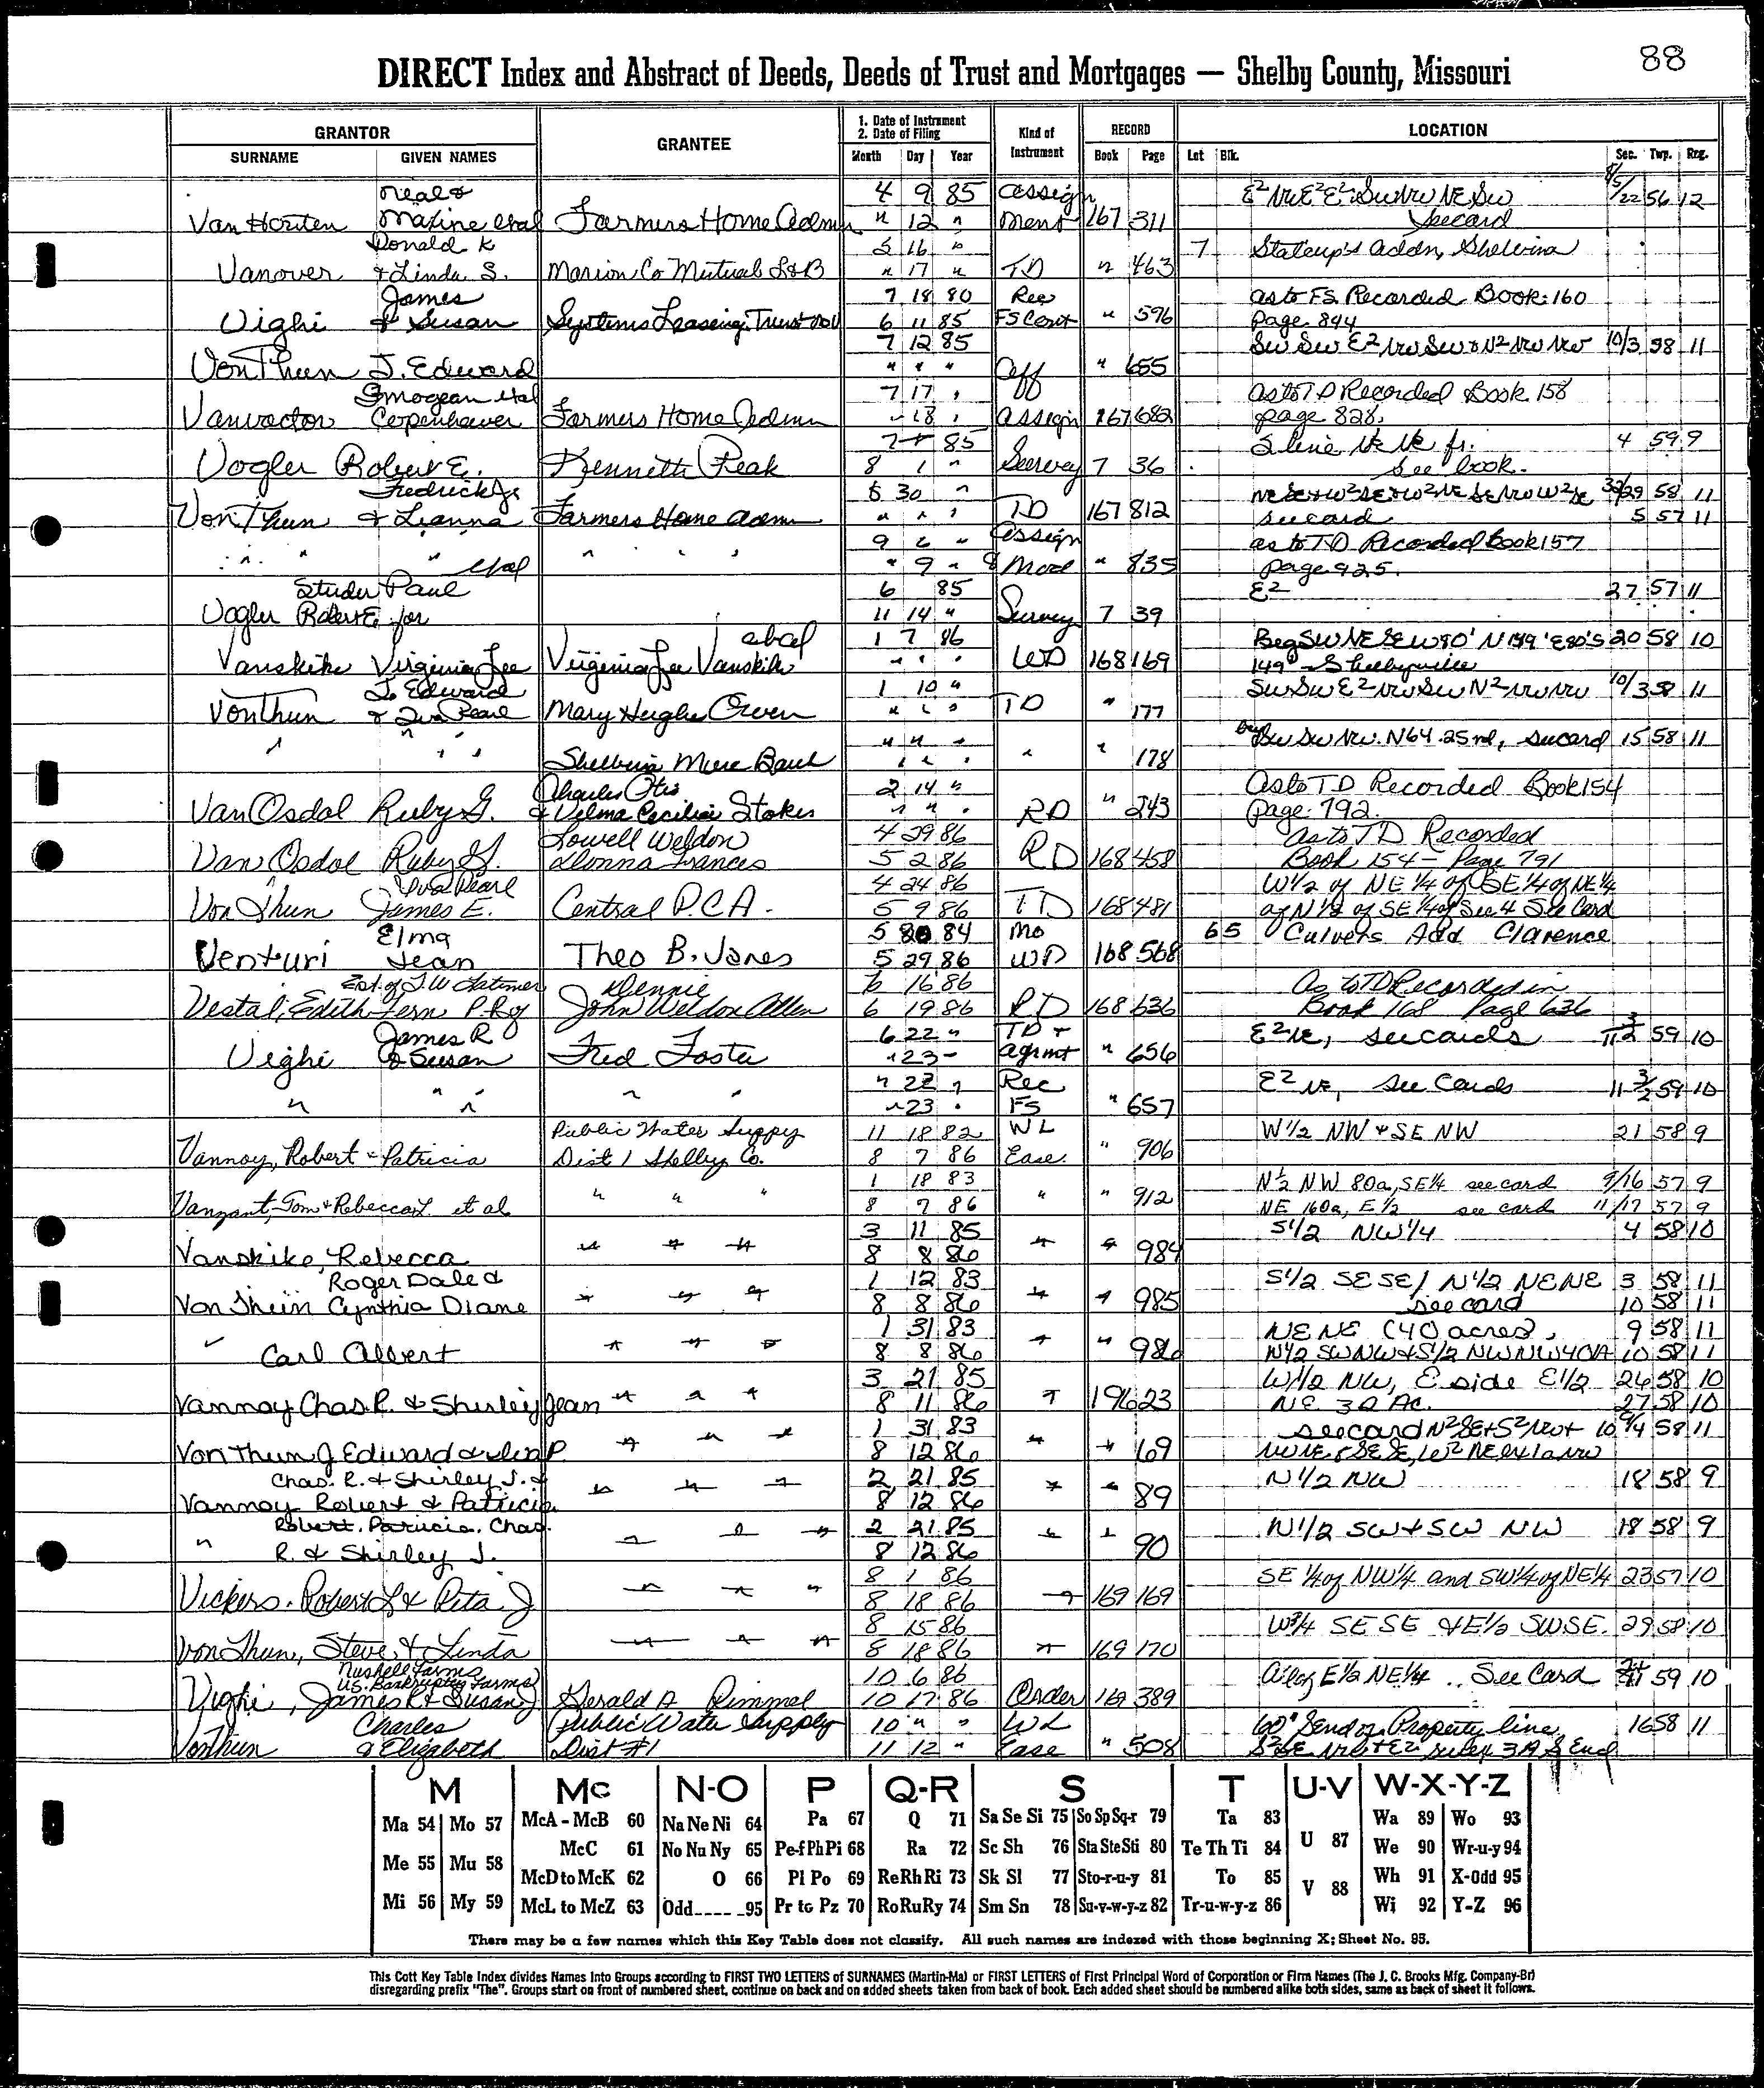 88
DIRECT Index and Abstract of Deeds, Deeds of Trust and Mortgages — Shelby County, Missouri
GRANTOR GRANTEE 1. Date of Instrument 2. Date of Filing Kind of Instrument RECORD LOCATION
SURNAME GIVEN NAMES Month Day Year Book Page Lot Blk. Sec. Twp. Rng.
Neal & 4 9 85 Assign
Van Houten Maxine etal Farmers Home Admn " 12 " ment 167 311 see card 22 56 12
Donald K 5 16 " 7 Addn, Shelbina
Vanover & Linda S. Marion Co Mutual " 17 " TD " 463
James 7 18 80 Rec as to FS Recorded Book 160
Vighi & Susan Systems Leasing 6 11 85 FS Cont " 596 page 844
7 12 85 SW SW E² NW SW & N² NW NW 10/3 58 11
VonThun J. Edward " " " Aff " 655
Imogean etal 7 17 " as to TD Recorded Book 158
Vanvactor Copenhaver Farmers Home Admn " 18 " Assign 167 682 page 828
7 85 4 59 9
Vogler Robert E. Kenneth Peak 8 1 " Survey 7 36 See book.
Fredrick Jr 30 " 58 11
VonThun & Leanna Farmers Home Admn " " " TD 167 812 see card 5 57 11
9 6 " Assign as to TD Recorded Book 157
" " etal " " " " 9 " & Mod " 835 page 925.
Studer Paul 6 85 E² 27 57 11
Vogler Robert E for 11 14 " Survey 7 39
etal 1 7 86 Beg SW NE SE W 80' 20 58 10
Vanskike Virginia Lee Virginia Lee Vanskike " " " WD 168 169 Shelbyville
J. Edward 1 10 " SW SW E² NW SW N² NW NW 10/3 58 11
VonThun & Iva Pearl Mary Hughes Owen " " " TD " 177
" " " " " " SW SW NW. N 64.25 see card 15 58 11
Shelbina Merc Bank " " " " " 178
Charles Otis 2 14 " As to TD Recorded Book 154
VanOsdol Ruby G. & Velma Cecilia Stokes " " " RD " 243 page 792.
Lowell Weldon 4 29 86 as to TD Recorded
Van Osdol Ruby G. Donna Frances 5 2 86 RD 168 458 Book 154 - Page 791
Iva Pearl 4 24 86 W1/2 of NE 1/4 of SE 1/4 of NE 1/4
VonThun James E. Central P.C.A. 5 9 86 TD 168 481 of N 1/2 of SE 1/4 of Sec 4 See Card
Elma 5 84 Mo 6 5 Culvers Add Clarence
Venturi Jean Theo B. Jones 5 29 86 WD 168 568
Est. of J.W. Latimer Dennie 6 16 86 As to TD Recorded in
Vestal, Edith Fern P.R of John Weldon Allen 6 19 86 RD 168 636 Book 168 Page 636
James R 6 22 " TD + E² NE, see cards 59 10
Vighi & Susan Fred Foster " 23 " agrmt " 656
" 22 " Rec E² NE, see Cards 59 10
" " " " " " 23 " FS " 657
Public Water Supply 11 18 82 WL W 1/2 NW & SE NW 21 58 9
Vannoy, Robert & Patricia Dist 1 Shelby Co. 8 7 86 Ease. " 906
1 18 83 N 1/2 NW 80a, SE 1/4 see card 9/16 57 9
Vanzant, Tom & Rebecca L et al " " " 8 7 86 " " 912 NE 160a, E 1/2 see card 11/17 57 9
3 11 85 S1/2 NW1/4 4 58 10
Vanskike, Rebecca " " " 8 8 86 " " 984
Roger Dale & 1 12 83 S1/2 SE SE / N1/2 NE NE 3 58 11
Von Thun Cynthia Diane " " " 8 8 86 " " 985 see card 10 58 11
1 31 83 NE NE (40 acres) 9 58 11
" Carl Albert " " " 8 8 86 " " 986 N1/2 SW NW & S1/2 NW NW 40A 10 58 11
3 21 85 W1/2 NW, E side E1/2 24 58 10
Vannoy Chas. R. & Shirley Jean " " " 8 11 86 " 196 23 NE 30 Ac. 27 58 10
1 31 83 see card N² SE & S² NW & 58 11
Von Thun J Edward & Iva P " " " 8 12 86 " " 69
Chas. R. & Shirley J. & 2 21 85 N 1/2 NW 18 58 9
Vannoy Robert & Patricia " " " 8 12 86 " " 89
Robert, Patricia, Chas. 2 21 85 N1/2 SW & SW NW 18 58 9
" R. & Shirley J. " " " 8 12 86 " " 90
8 1 86 SE 1/4 of NW 1/4 and SW 1/4 of NE 1/4 23 57 10
Vickers, Robert L & Rita J " " " 8 18 86 " 169 169
8 15 86 W3/4 SE SE & E1/2 SW SE. 29 58 10
Von Thun, Steve & Linda " " " 8 18 86 " 169 170
Nushell Farms
U.S. Bankruptcy Farms 10 6 86 All of E 1/2 NE 1/4 .. See Card 59 10
Vighi, James R & Susan J Gerald A Rimmel 10 17 86 Order 169 389
Charles Public Water Supply 10 " " WL 60' S end of Property line 16 58 11
VonThun & Elizabeth Dist #1 11 12 " Ease " 508 3A S End
M Mc N-O P Q-R S T U-V W-X-Y-Z
Ma 54 Mo 57 McA - McB 60 Na Ne Ni 64 Pa 67 Q 71 Sa Se Si 75 So Sp Sq-r 79 Ta 83 U 87 Wa 89 Wo 93
McC 61 No Nu Ny 65 Pe-f Ph Pi 68 Ra 72 Sc Sh 76 Sta Ste Sti 80 Te Th Ti 84 We 90 Wr-u-y 94
Me 55 Mu 58 McD to McK 62 O 66 Pl Po 69 Re Rh Ri 73 Sk Sl 77 Sto-r-u-y 81 To 85 V 88 Wh 91 X-Odd 95
Mi 56 My 59 McL to McZ 63 Odd---- 95 Pr to Pz 70 Ro Ru Ry 74 Sm Sn 78 Su-v-w-y-z 82 Tr-u-w-y-z 86 Wi 92 Y-Z 96
There may be a few names which this Key Table does not classify. All such names are indexed with those beginning X; Sheet No. 95.
This Cott Key Table Index divides Names Into Groups according to FIRST TWO LETTERS of SURNAMES (Martin-Ma) or FIRST LETTERS of First Principal Word of Corporation or Firm Names (The J. C. Brooks Mfg. Company-Br)
disregarding prefix "The". Groups start on front of numbered sheet, continue on back and on added sheets taken from back of book. Each added sheet should be numbered alike both sides, same as back of sheet it follows.